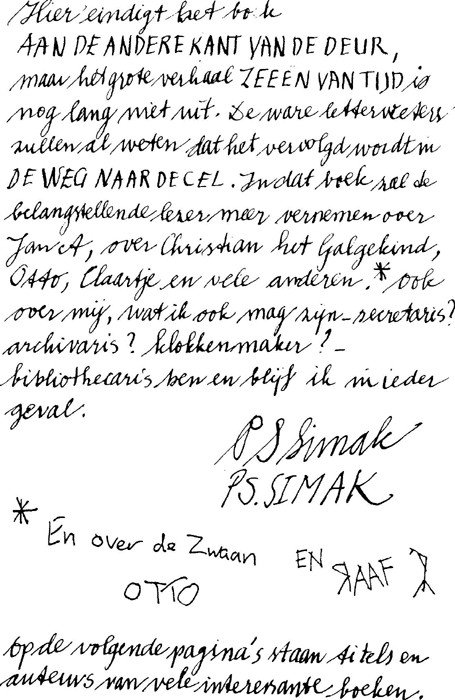 Hier eindigt het boek
AAN DE ANDERE KANT VAN DE DEUR,
maar het grote verhaal ZEEEN VAN TIJD is
nog lang niet uit. De ware lettervreters
zullen al weten dat het vervolgd wordt in
DE WEG NAAR DE CEL. In dat boek zal de
belangstellende lezer meer vernemen over
Jan A, over Christian het Galgekind,
Otto, Claartje en vele anderen.* Ook
over mij, wat ik ook mag zijn - secretaris?
archivaris? klokkenmaker? -
bibliothecaris ben en blijf ik in ieder
geval.
P S Simak
P.S. SIMAK
* En over de Zwaan EN RAAF
OTTO
Op de volgende pagina's staan titels en
auteurs van vele interessante boeken.